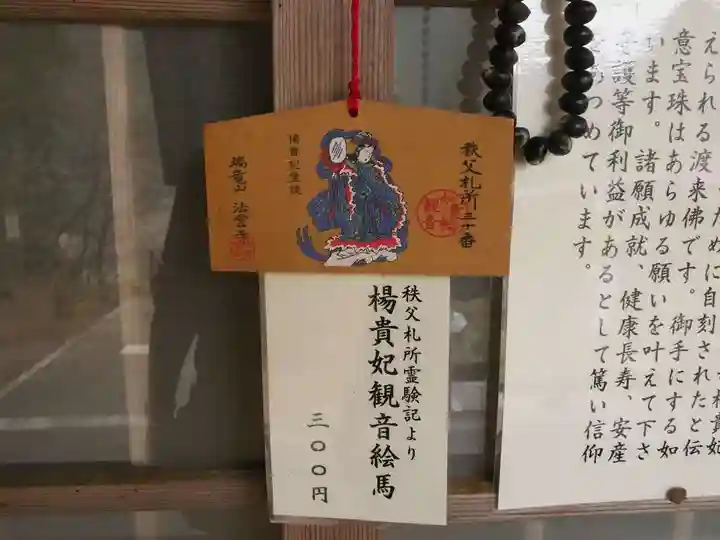 秩父札所三十番
瑞竜山 法雲寺
秩父札所霊験記より
楊貴妃観音絵馬
三〇〇円
えられる渡来佛です。御手にする如
意宝珠はあらゆる願いを叶えて下さ
います。諸願成就、健康長寿、安産
守護等御利益があるとして篤い信仰
をあつめています。